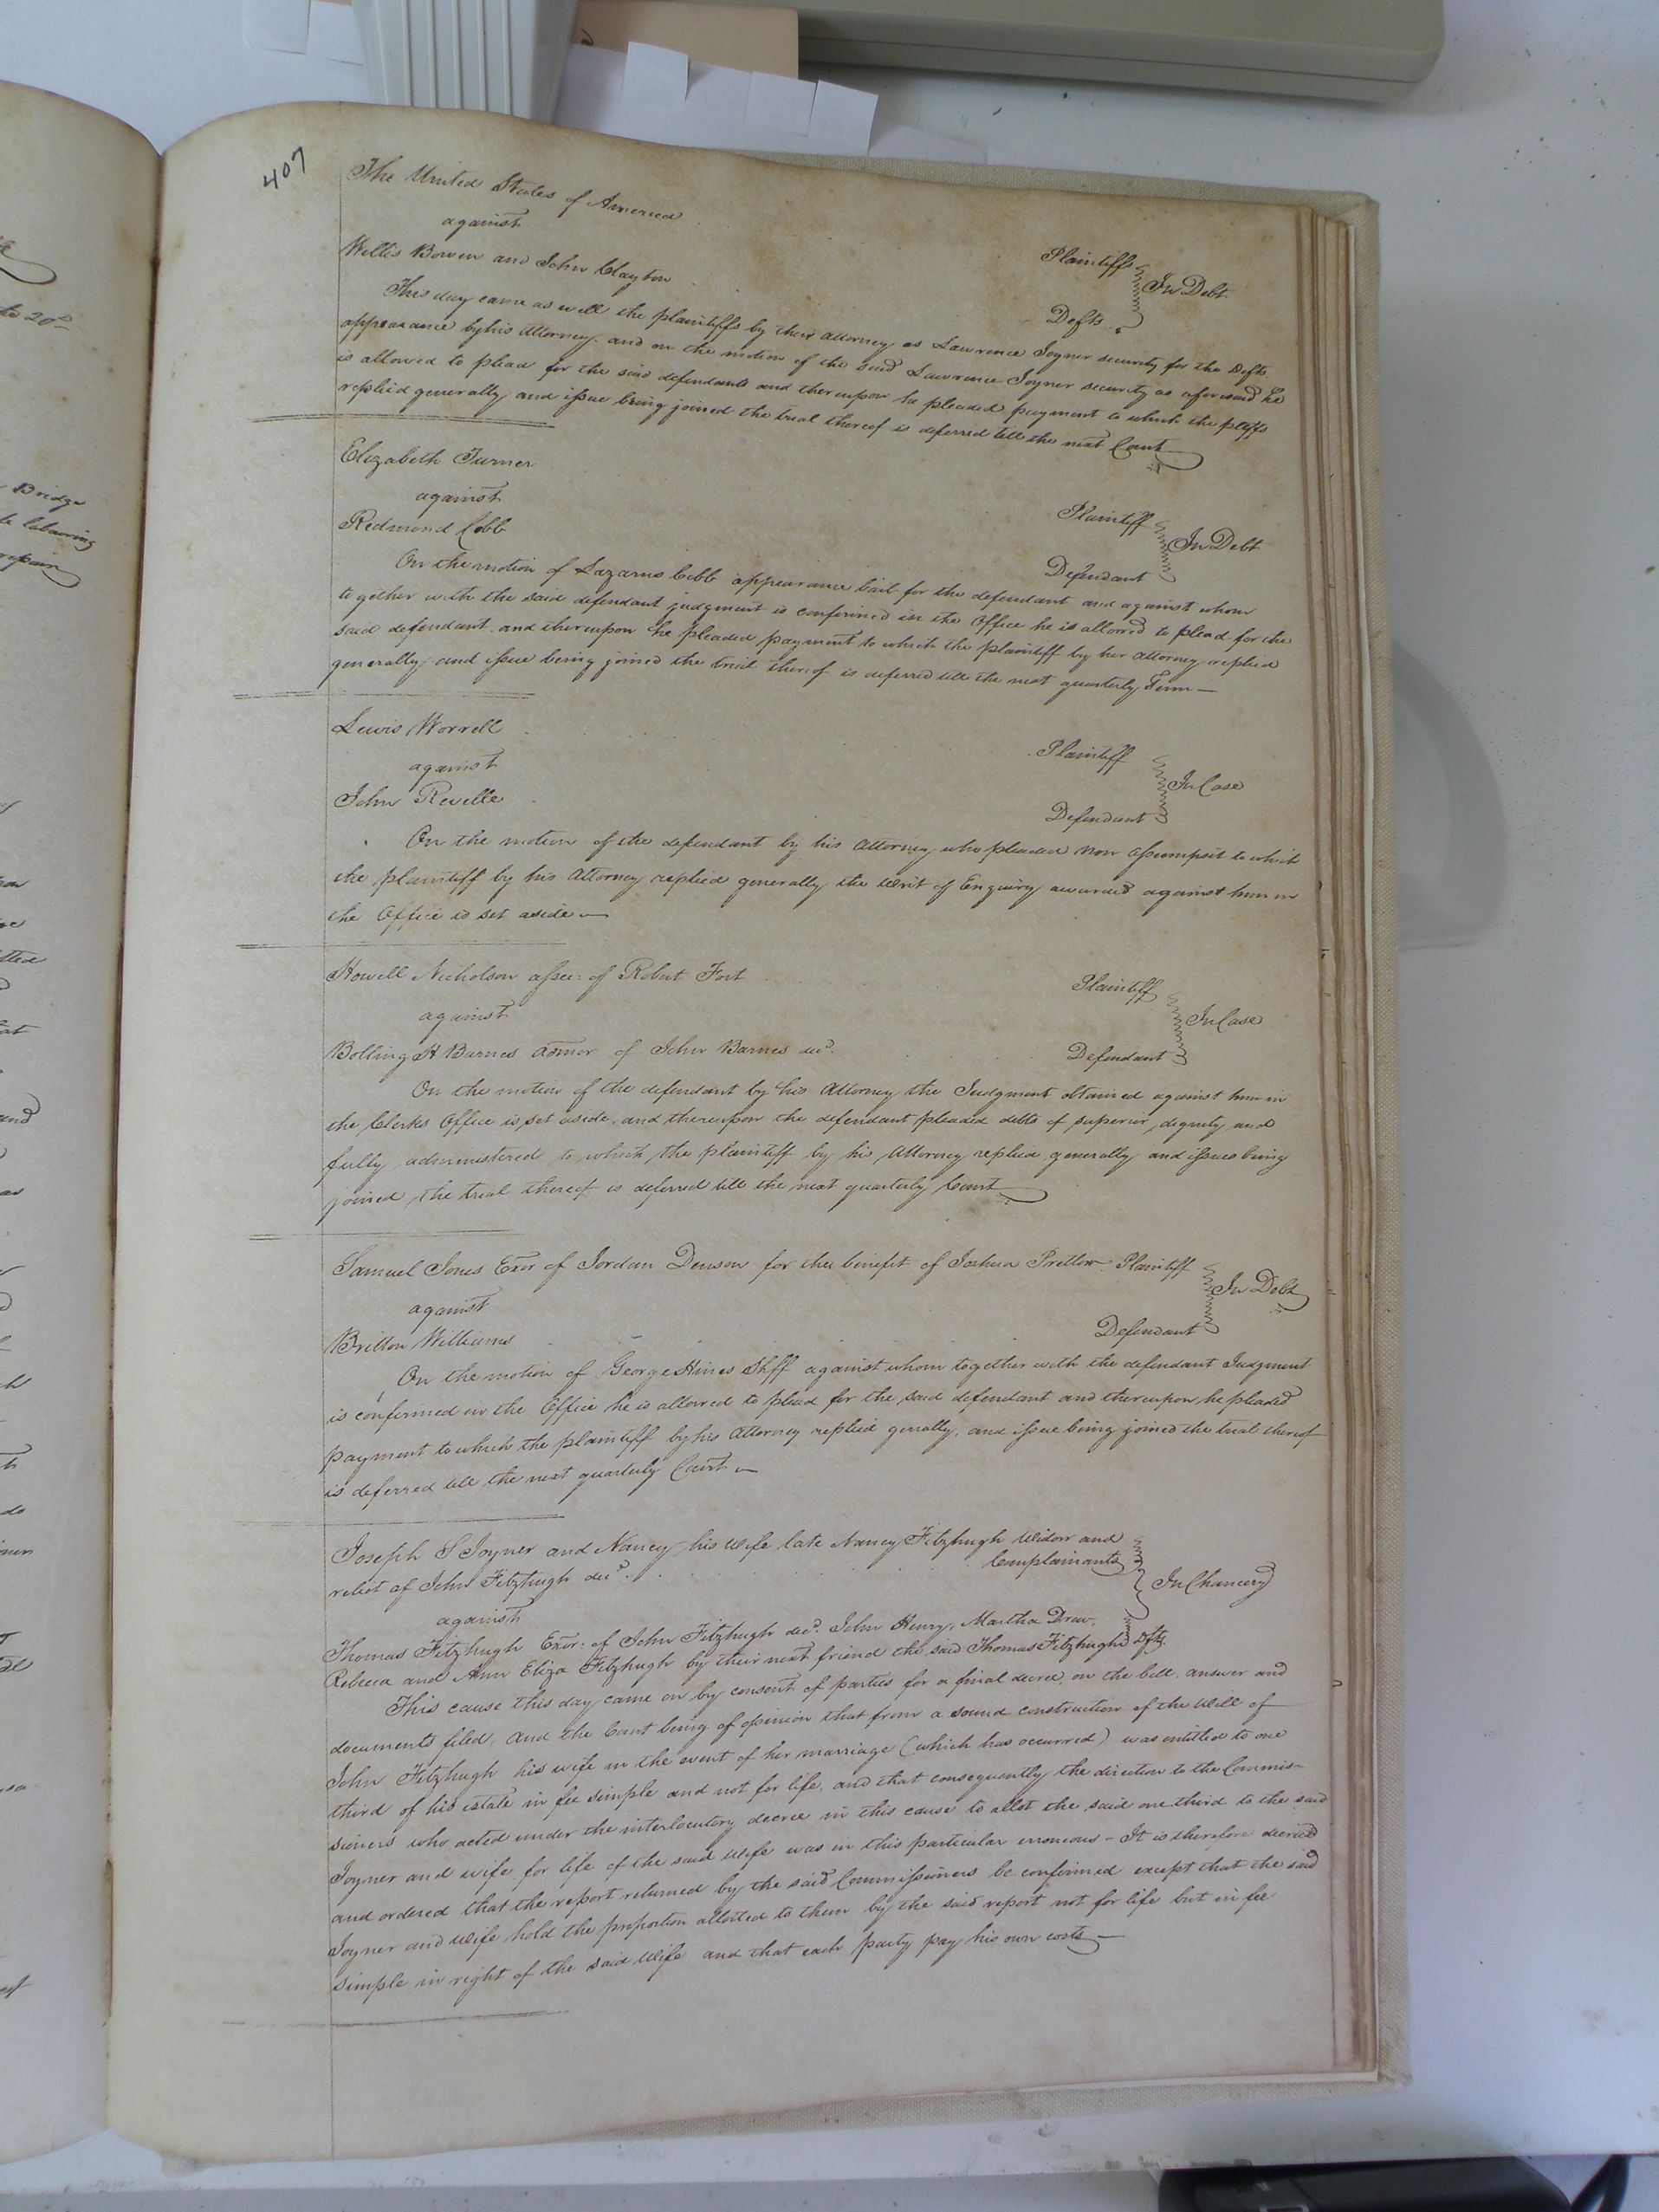 407
The United States of America
against
Plaintiffs
In Debt
Willis Bowen and John Clayton
Defts
This day came as well the plaintiffs by their attorney as Lawrence Joyner security for the Defts
appearance by his Attorney. and on the motion of the said Lawrence Joyner security as aforesaid he
is allowed to plead for the said defendants and thereupon he pleaded payment to which the pltffs
replied generally and issue being joined the trial thereof is deferred till the next Court
Elizabeth Turner
against
Plaintiff
In Debt
Redmond Cobb
Defendant
On the motion of Lazarus Cobb appearance bail for the defendant and against whom
together with the said defendant judgment is confirmed in the Office he is allowed to plead for the
said defendant. and thereupon he pleaded payment to which the plaintiff by her attorney replied
generally and issue being joined the trial thereof is deferred till the next quarterly Term
Lewis Worrell
against
Plaintiff
In Case
John Revelle
Defendant
On the motion of the defendant by his Attorney who pleaded non assumpsit to which
the plaintiff by his Attorney replied generally the writ of Enquiry awarded against him in
the Office is set aside
Howell Nicholson assee: of Robert Fort
Plaintiff
against
In Case
Bolling H Barnes admor of John Barnes decd.
Defendant
On the motion of the defendant by his Attorney the Judgment obtained against him in
the Clerks Office is set aside, and thereupon the defendant pleaded debts of superior dignity and
fully administered to which the plaintiff by his Attorney replied generally and issues being
joined the trial thereof is deferred till the next quarterly Court
Samuel Jones Exor of Jordan Denson for the benefit of Joshua Pretlow Plaintiff
against
In Debt
Britton Williams
Defendant
On the motion of George Hines Shff against whom together with the defendant Judgment
is confirmed in the Office he is allowed to plead for the said defendant and thereupon he pleaded
payment to which the plaintiff by his Attorney replied genally, and issue being joined the trial thereof
is deferred till the next quarterly Court
Joseph S Joyner and Nancy his wife late Nancy Fitzhugh widow and
relict of John Fitzhugh decd.
Complainants
In Chancery
against
Thomas Fitzhugh Exor: of John Fitzhugh decd. John Henry, Martha Drew,
Rebecca and Ann Eliza Fitzhugh by their next friend the said Thomas Fitzhugh Dfts
This cause this day came on by consent of parties for a final decree, on the bill, answer and
documents filed, and the Court being of opinion that from a sound construction of the Will of
John Fitzhugh his wife in the event of her marriage (which has occurred) was entitled to one
third of his estate in fee simple and not for life, and that consequently the direction to the Commis-
sioners who acted under the interlocutory decree in this cause to allot the said one third to the said
Joyner and wife for life of the said wife was in this particular erroneous - It is therefore decreed
and ordered that the report returned by the said Commissioners be confirmed except that the said
Joyner and wife hold the proportion allotted to them by the said report not for life but in fee
simple in right of the said wife and that each party pay his own costs
Bridge
labouring
repair